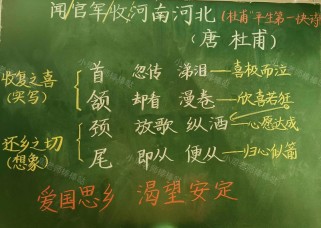 闻/官军/收/河南河北(杜甫"平生第一快诗")
(唐 杜甫)
收复之喜(实写)
首 忽传 涕泪—喜极而泣
颔 却看 漫卷—欣喜若狂
还乡之切(想象)
颈 放歌 纵酒—心愿达成
尾 即从 便从—归心似箭
爱国思乡 渴望安定